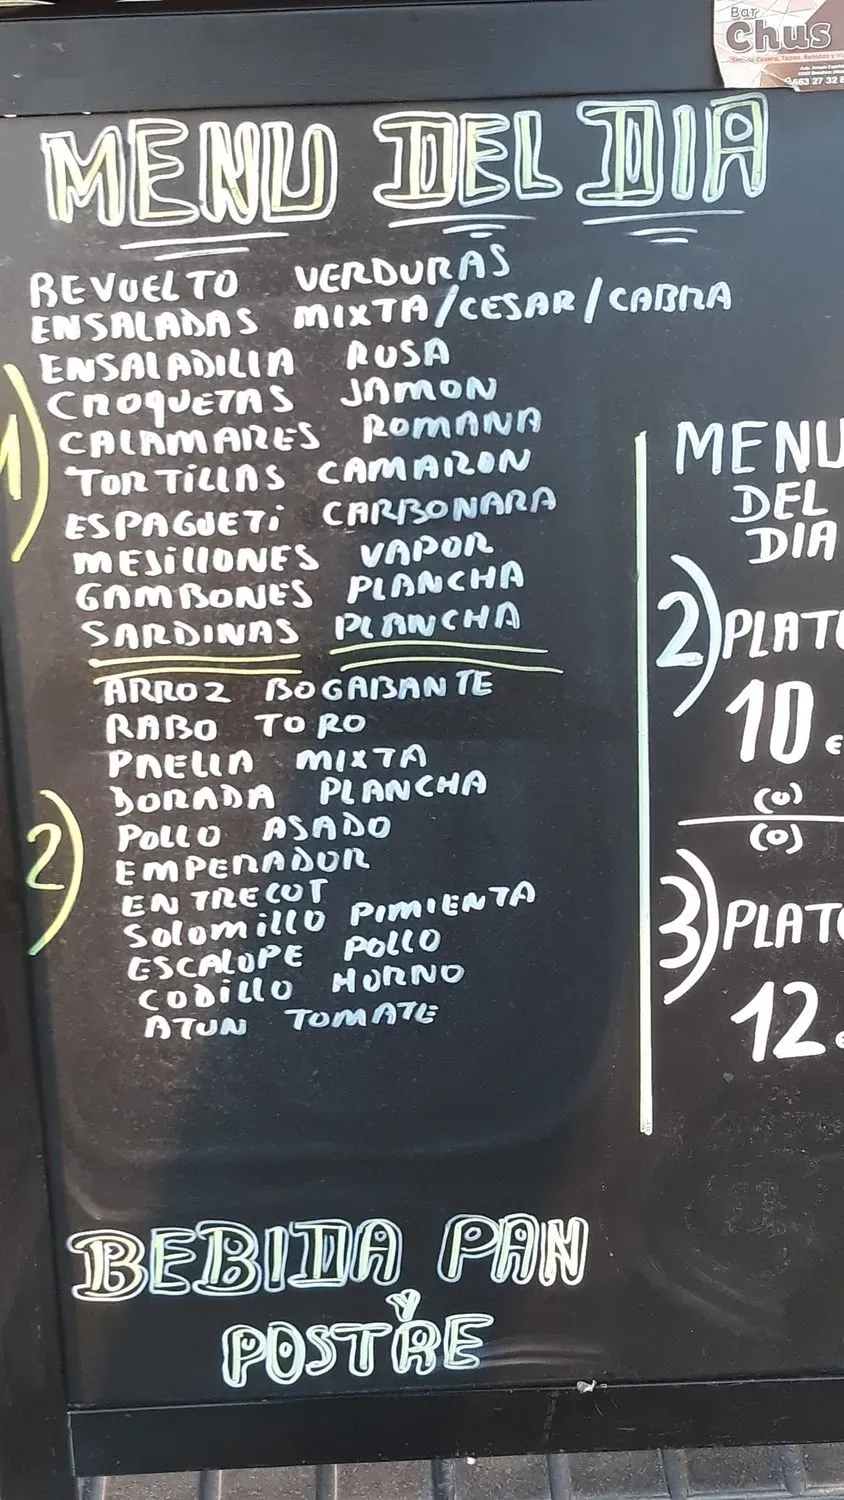 Bar
Chus
MENU DEL DIA
REVUELTO VERDURAS
ENSALADAS MIXTA/CESAR/CABRA
ENSALADILLA RUSA
CROQUETAS JAMON
CALAMARES ROMANA
TORTILLAS CAMARON
ESPAGUETI CARBONARA
MEJILLONES VAPOR
GAMBONES PLANCHA
SARDINAS PLANCHA
1)
ARROZ BOGABANTE
RABO TORO
PAELLA MIXTA
DORADA PLANCHA
POLLO ASADO
EMPERADOR
ENTRECOT
SOLOMILLO PIMIENTA
ESCALOPE POLLO
CODILLO HORNO
ATUN TOMATE
2)
BEBIDA PAN
Y
POSTRE
MENU
DEL
DIA
2) PLATO
10 €
(O)
(O)
3) PLATO
12